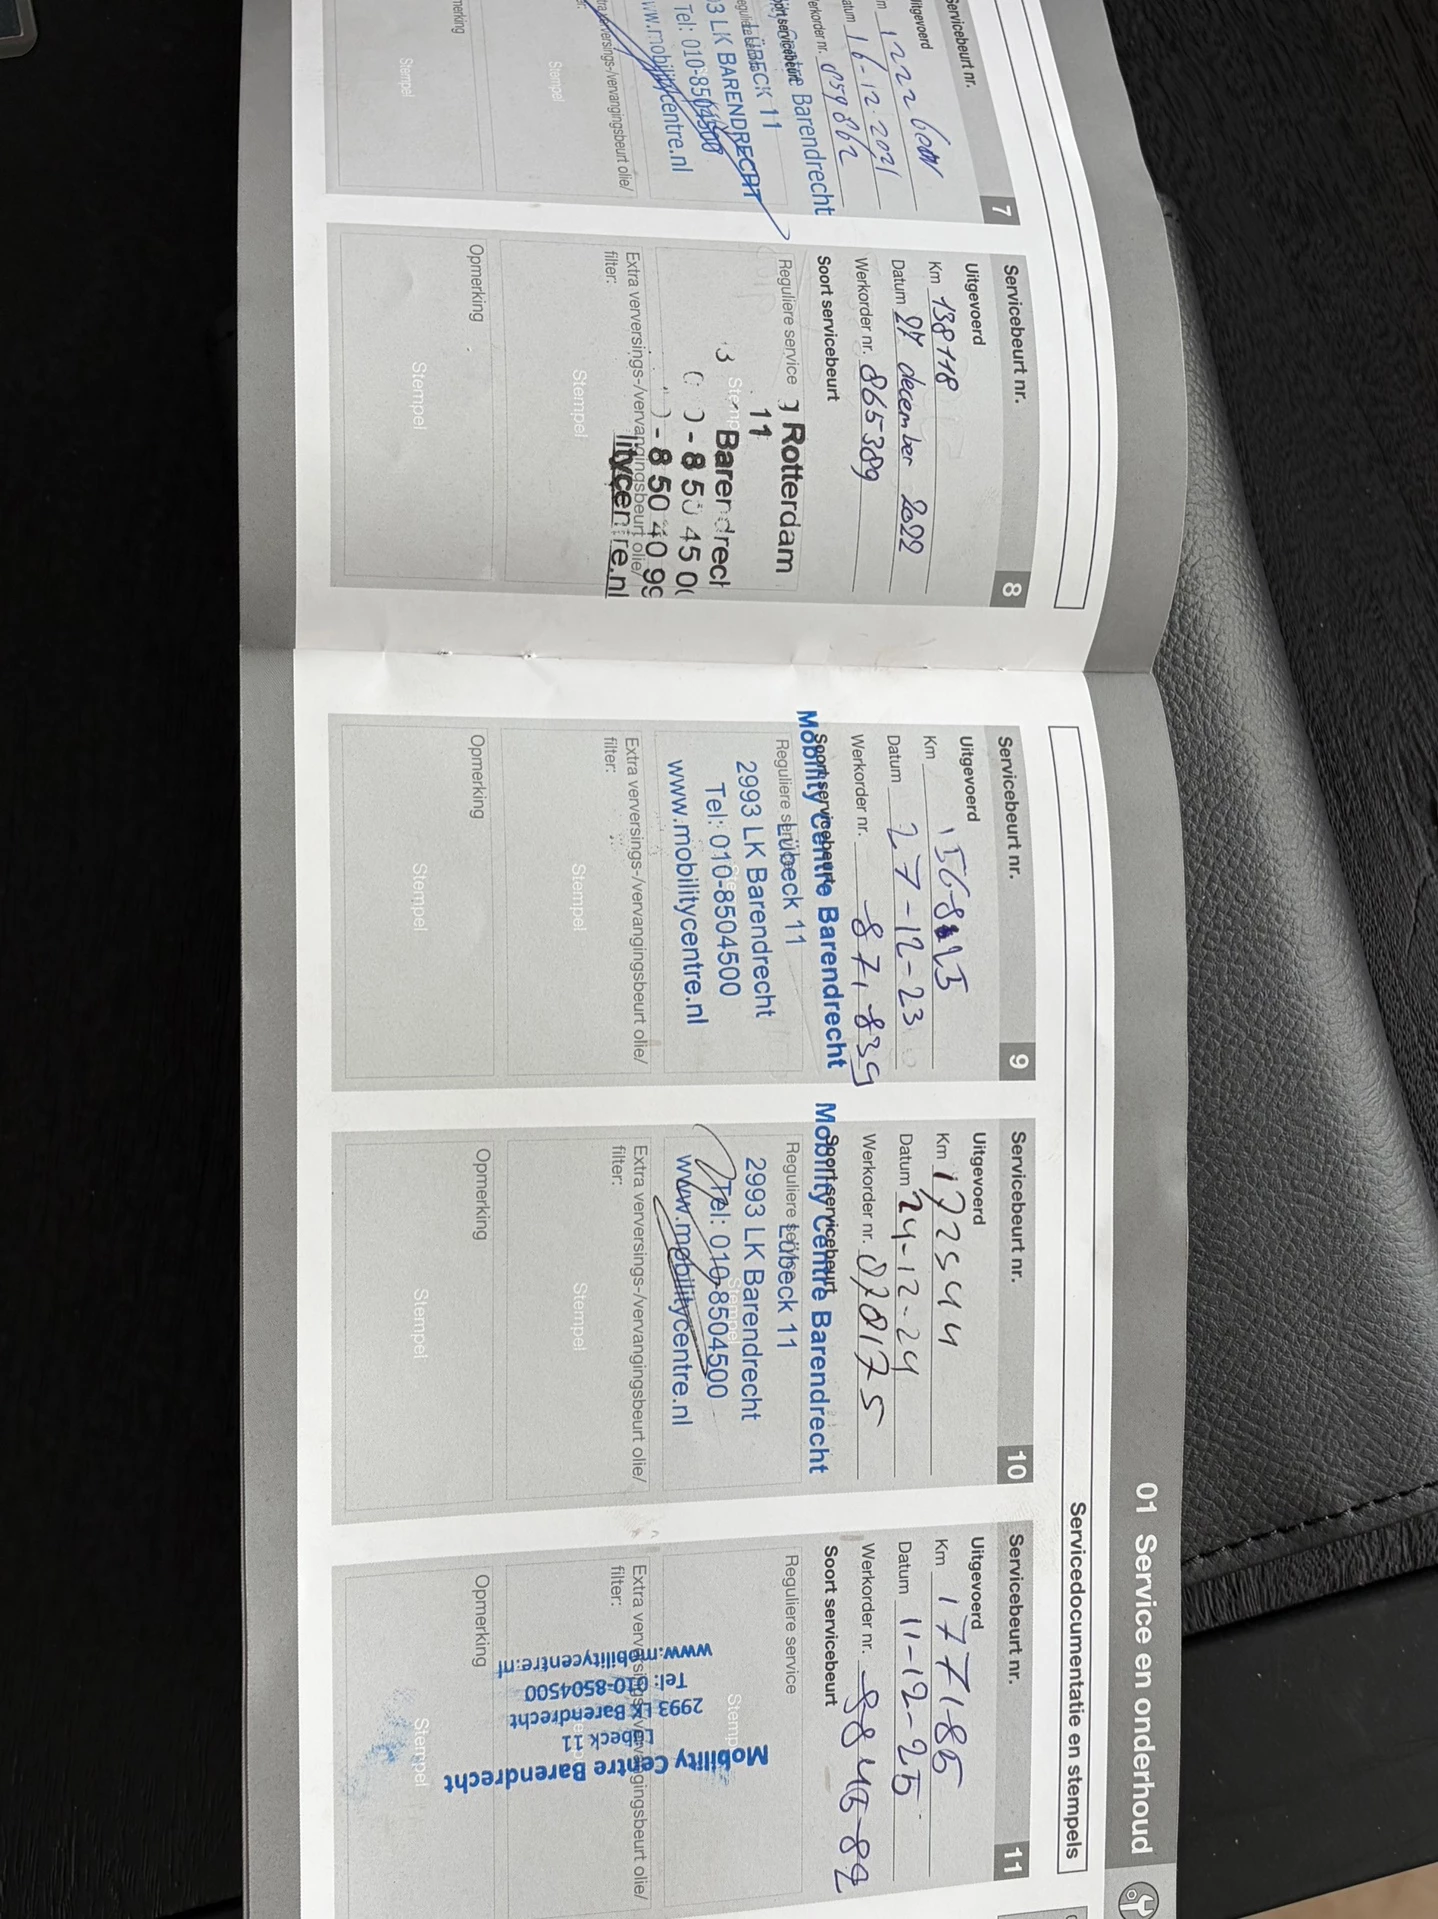 01 Service en onderhoud
Servicedocumentatie en stempels
Servicebeurt nr. 7
Uitgevoerd
16-12-2021
Werkorder nr. 859862
Soort servicebeurt
Centre Barendrecht
LÜBECK 11
93 LK BARENDRECHT
Tel: 010-8504500
ww.mobilitycentre.nl
tra verversings-/vervangingsbeurt olie/
Stempel
merking
Stempel
Servicebeurt nr. 8
Uitgevoerd
Km 138118
Datum 27 december 2022
Werkorder nr. 865389
Soort servicebeurt
Reguliere service
Rotterdam
11
Barendrech
0-8504500
0-8504099
litycentre.nl
Extra verversings-/vervangingsbeurt olie/
filter:
Stempel
Opmerking
Stempel
Servicebeurt nr. 9
Uitgevoerd
Km
Datum 27-12-23
Werkorder nr. 871839
Soort servicebeurt
Mobility Centre Barendrecht
Reguliere service
Lübeck 11
2993 LK Barendrecht
Tel: 010-8504500
www.mobilitycentre.nl
Extra verversings-/vervangingsbeurt olie/
filter:
Stempel
Opmerking
Stempel
Servicebeurt nr. 10
Uitgevoerd
Km 172544
Datum 24-12-24
Werkorder nr. 878175
Soort servicebeurt
Mobility Centre Barendrecht
Reguliere service
Lübeck 11
2993 LK Barendrecht
Stempel
Tel: 010-8504500
www.mobilitycentre.nl
Extra verversings-/vervangingsbeurt olie/
filter:
Stempel
Opmerking
Stempel
Servicebeurt nr. 11
Uitgevoerd
Km 177185
Datum 11-12-25
Werkorder nr.
Soort servicebeurt
Reguliere service
Stemp
Extra verversings-/vervangingsbeurt olie/
filter:
Opmerking
Stempel
Mobility Centre Barendrecht
Lübeck 11
2993 LK Barendrecht
Tel: 010-8504500
www.mobilitycentre.nl